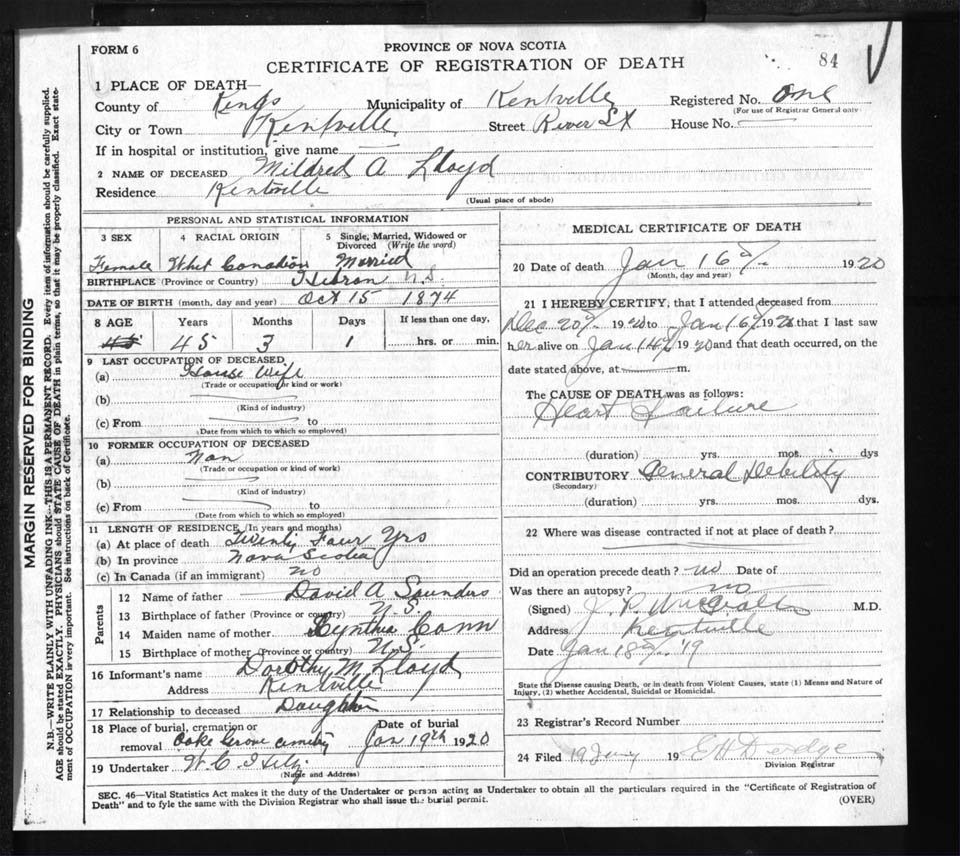 FORM 6
PROVINCE OF NOVA SCOTIA
CERTIFICATE OF REGISTRATION OF DEATH
84
1 PLACE OF DEATH—
County of Kings Municipality of Kentville Registered No. One
(For use of Registrar General only)
City or Town Kentville Street River St House No.
If in hospital or institution, give name
2 NAME OF DECEASED Mildred A Lloyd
Residence Kentville
(Usual place of abode)
PERSONAL AND STATISTICAL INFORMATION
3 SEX 4 RACIAL ORIGIN 5 Single, Married, Widowed or Divorced (Write the word)
Female Whit Canadian Married
BIRTHPLACE (Province or Country) Hebron N.S.
DATE OF BIRTH (month, day and year) Oct 15 1874
8 AGE Years Months Days If less than one day,
45 45 3 1 hrs. or min.
9 LAST OCCUPATION OF DECEASED
(a) House Wife
(Trade or occupation or kind or work)
(b)
(Kind of industry)
(c) From to
(Date from which to which so employed)
10 FORMER OCCUPATION OF DECEASED
(a) Non
(Trade or occupation or kind of work)
(b)
(Kind of industry)
(c) From to
(Date from which to which so employed)
11 LENGTH OF RESIDENCE (In years and months)
(a) At place of death Twenty Four Yrs
(b) In province Nova Scotia
(c) In Canada (if an immigrant) no
Parents
12 Name of father David A Saunders
13 Birthplace of father (Province or country) N.S.
14 Maiden name of mother Cynthia Cann
15 Birthplace of mother (Province or country) N.S.
16 Informant's name Dorothy M. Lloyd
Address Kentville
17 Relationship to deceased Daughter
18 Place of burial, cremation or removal Oake Grove cemetry Date of burial Jan 19th 1920
19 Undertaker W. C.
(Name and Address)
MEDICAL CERTIFICATE OF DEATH
20 Date of death Jan 16th 1920
(Month, day and year)
21 I HEREBY CERTIFY, that I attended deceased from
Dec 20th 1920 to Jan 16th 1920 that I last saw
her alive on Jan 14th 1920 and that death occurred, on the
date stated above, at m.
The CAUSE OF DEATH was as follows:
Heart Failure
(duration) yrs. mos. dys
CONTRIBUTORY General Debility
(Secondary)
(duration) yrs. mos. dys.
22 Where was disease contracted if not at place of death?
Did an operation precede death? no Date of
Was there an autopsy? no
(Signed) J. P. M.D.
Address Kentville
Date Jan 18th '19
State the Disease causing Death, or in death from Violent Causes, state (1) Means and Nature of
Injury, (2) whether Accidental, Suicidal or Homicidal.
23 Registrar's Record Number
24 Filed 19 Jany 19
Division Registrar
SEC. 46—Vital Statistics Act makes it the duty of the Undertaker or person acting as Undertaker to obtain all the particulars required in the "Certificate of Registration of
Death" and to fyle the same with the Division Registrar who shall issue the burial permit. (OVER)
MARGIN RESERVED FOR BINDING
N.B.—WRITE PLAINLY WITH UNFADING INK—THIS IS A PERMANENT RECORD. Every item of information should be carefully supplied.
AGE should be stated EXACTLY. PHYSICIANS should STATE CAUSE OF DEATH in plain terms, so that it may be properly classified. Exact statement
of OCCUPATION is very important. See instructions on back of Certificate.